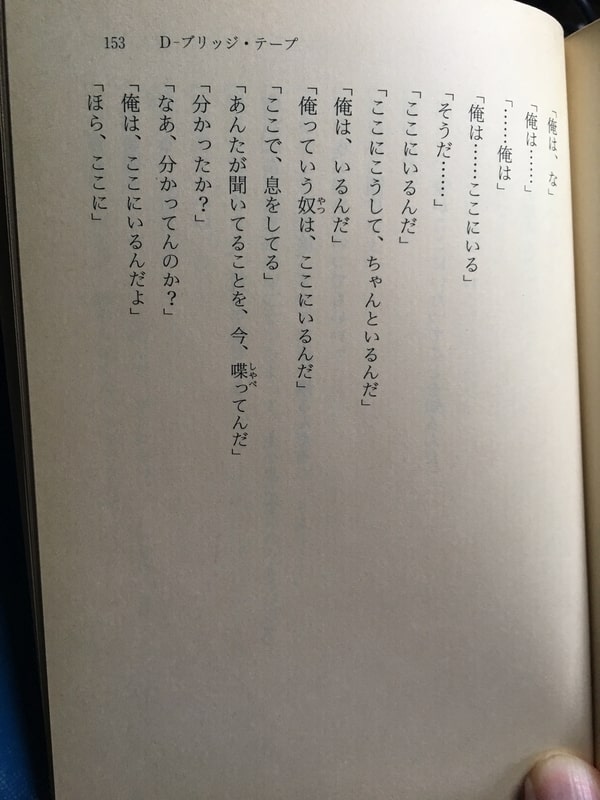 153 D-ブリッジ・テープ
「俺は、な」
「俺は……」
「……俺は」
「俺は……ここにいる」
「そうだ……」
「ここにいるんだ」
「ここにこうして、ちゃんといるんだ」
「俺は、いるんだ」
「俺っていう奴は、ここにいるんだ」
やつ
「ここで、息をしてる」
「あんたが聞いてることを、今、喋ってんだ」
しゃべ
「分かったか？」
「なあ、分かってんのか？」
「俺は、ここにいるんだよ」
「ほら、ここに」